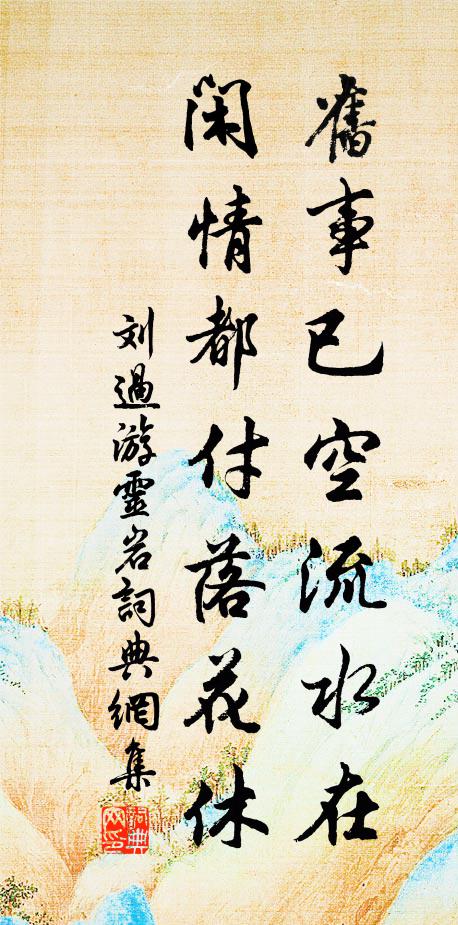 舊事已空流水在
閑情都付落花休
刘過游靈岩詞典網集
詞典
网印